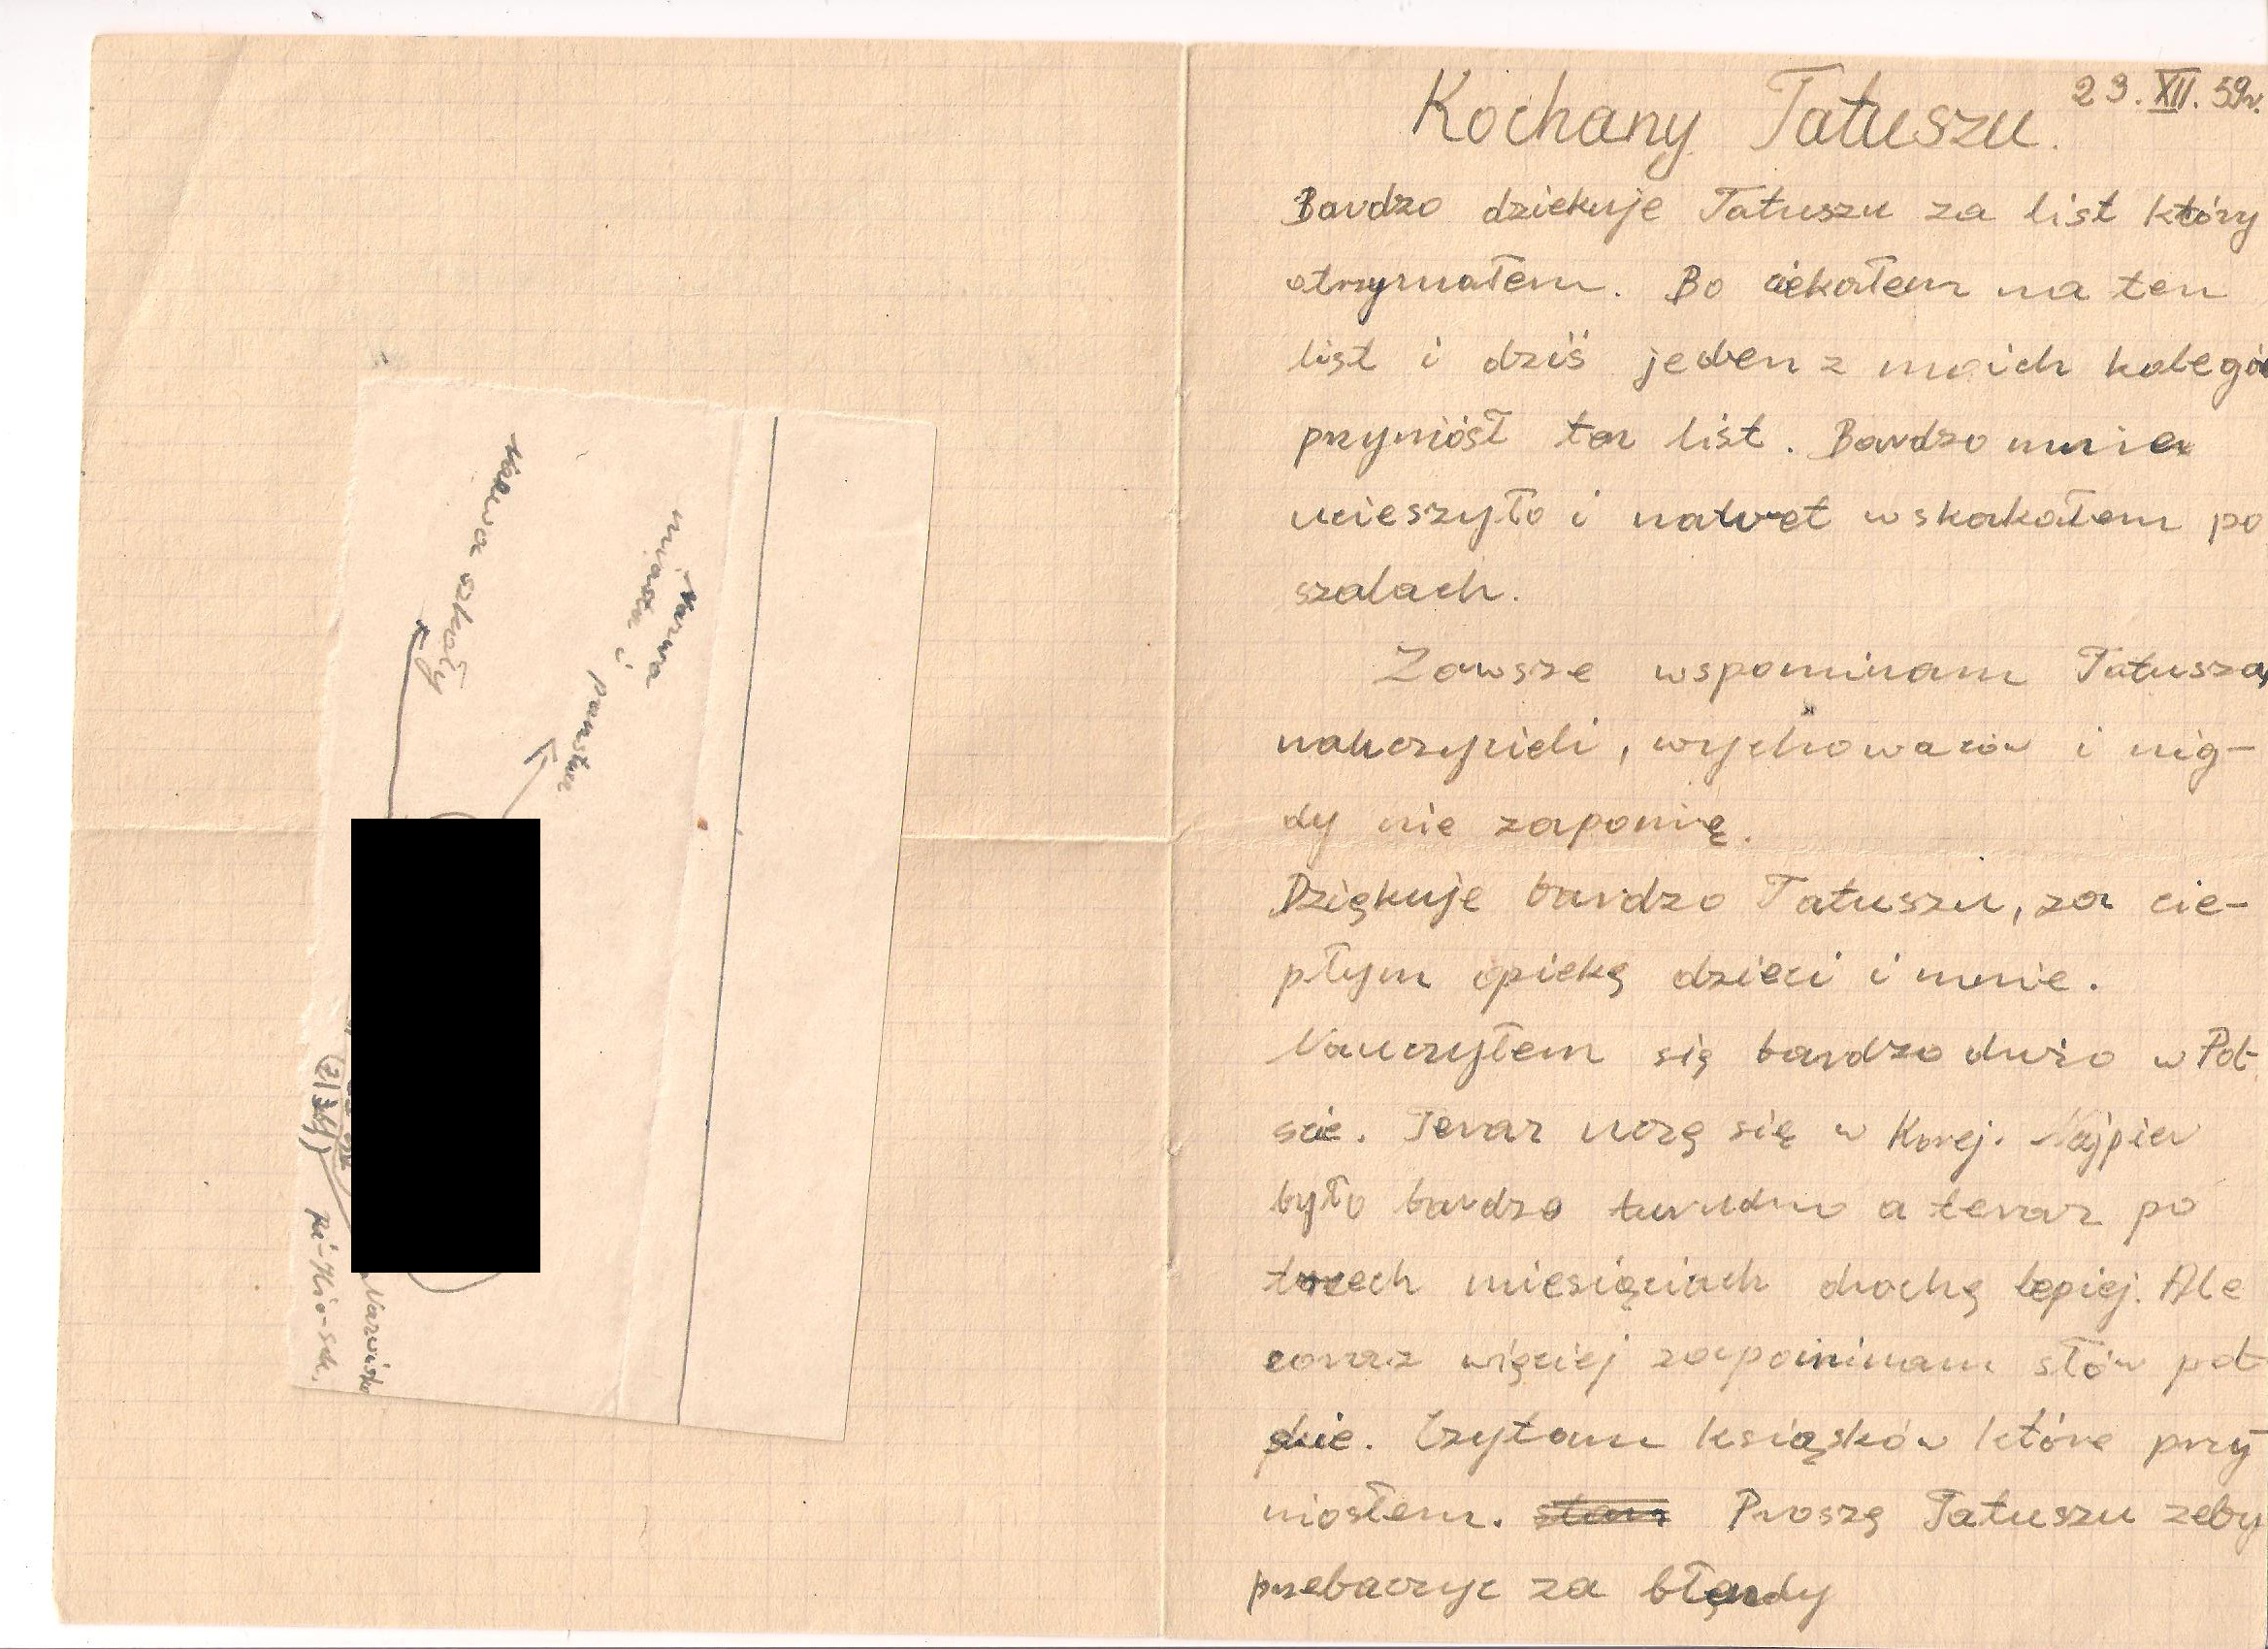 23. XII. 59r.
Kochany Tatuszu.
Bardzo dziekuje Tatuszu za list który
otrzymałem. Bo ciekałem na ten
list i dziś jeden z moich kolegó
przyniósł ten list. Bardzo mnie
ucieszyło i nawet wskakałem po
szalach.
Zawsze wspominam Tatusza,
nauczycieli, wychowaców i nig-
dy nie zapomnę.
Dziękuje bardzo Tatuszu, za cie-
płym opieką dzieci i mnie.
Nauczyłem się bardzo dużo w Pol
sce. Teraz uczę się w Korej. Najpierw
było bardzo turudno a teraz po
trzech miesięciach drochę lepiej. Ale
coraz więciej zapominam słów pol
skie. Czytam książków które przy
niosłem. Proszę Tatuszu zeby
przebaczyc za błędy
Nazwa szkoły
Nazwa
miasta i
państwa
Nazwisko